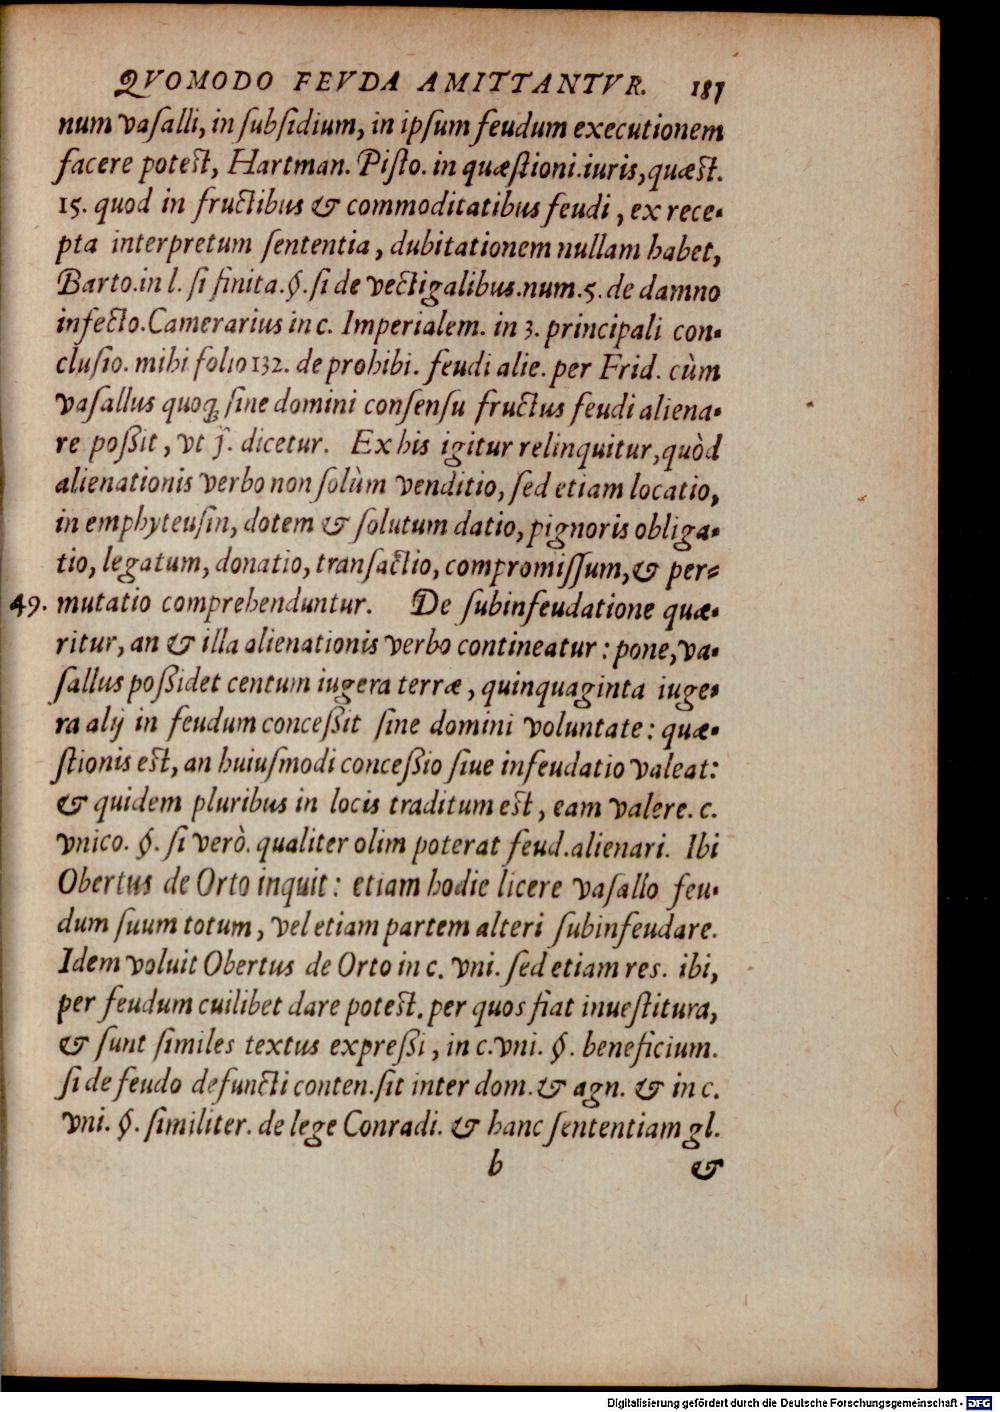 QVOMODO FEVDA AMITTANTVR. 187
num vaſalli, in ſubſidium, in ipſum feudum executionem
facere poteſt, Hartman. Piſto. in quæſtioni.iuris, quæſt.
15. quod in fructibus & commoditatibus feudi, ex rece-
pta interpretum ſententia, dubitationem nullam habet,
Barto. in l. ſi finita. §. ſi de vectigalibus. num. 5. de damno
infecto. Camerarius in c. Imperialem. in 3. principali con-
cluſio. mihi folio 132. de prohibi. feudi alie. per Frid. cùm
vaſallus quoq; ſine domini conſenſu fructus feudi aliena-
re poßit, vt j. dicetur. Ex his igitur relinquitur, quòd
alienationis verbo non ſolùm venditio, ſed etiam locatio,
in emphyteuſin, dotem & ſolutum datio, pignoris obliga-
tio, legatum, donatio, tranſactio, compromiſſum, & per-
49. mutatio comprehenduntur. De ſubinfeudatione quæ-
ritur, an & illa alienationis verbo contineatur: pone, va-
ſallus poßidet centum iugera terræ, quinquaginta iuge-
ra alij in feudum conceßit ſine domini voluntate: quæ-
ſtionis eſt, an huiuſmodi conceßio ſiue infeudatio valeat:
& quidem pluribus in locis traditum eſt, eam valere. c.
vnico. §. ſi verò. qualiter olim poterat feud. alienari. Ibi
Obertus de Orto inquit: etiam hodie licere vaſallo feu-
dum ſuum totum, vel etiam partem alteri ſubinfeudare.
Idem voluit Obertus de Orto in c. vni. ſed etiam res. ibi,
per feudum cuilibet dare poteſt. per quos fiat inueſtitura,
& ſunt ſimiles textus expreßi, in c. vni. §. beneficium.
ſi de feudo defuncti conten. ſit inter dom. & agn. & in c.
vni. §. ſimiliter. de lege Conradi. & hanc ſententiam gl.
b &
Digitalisierung gefördert durch die Deutsche Forschungsgemeinschaft - DFG